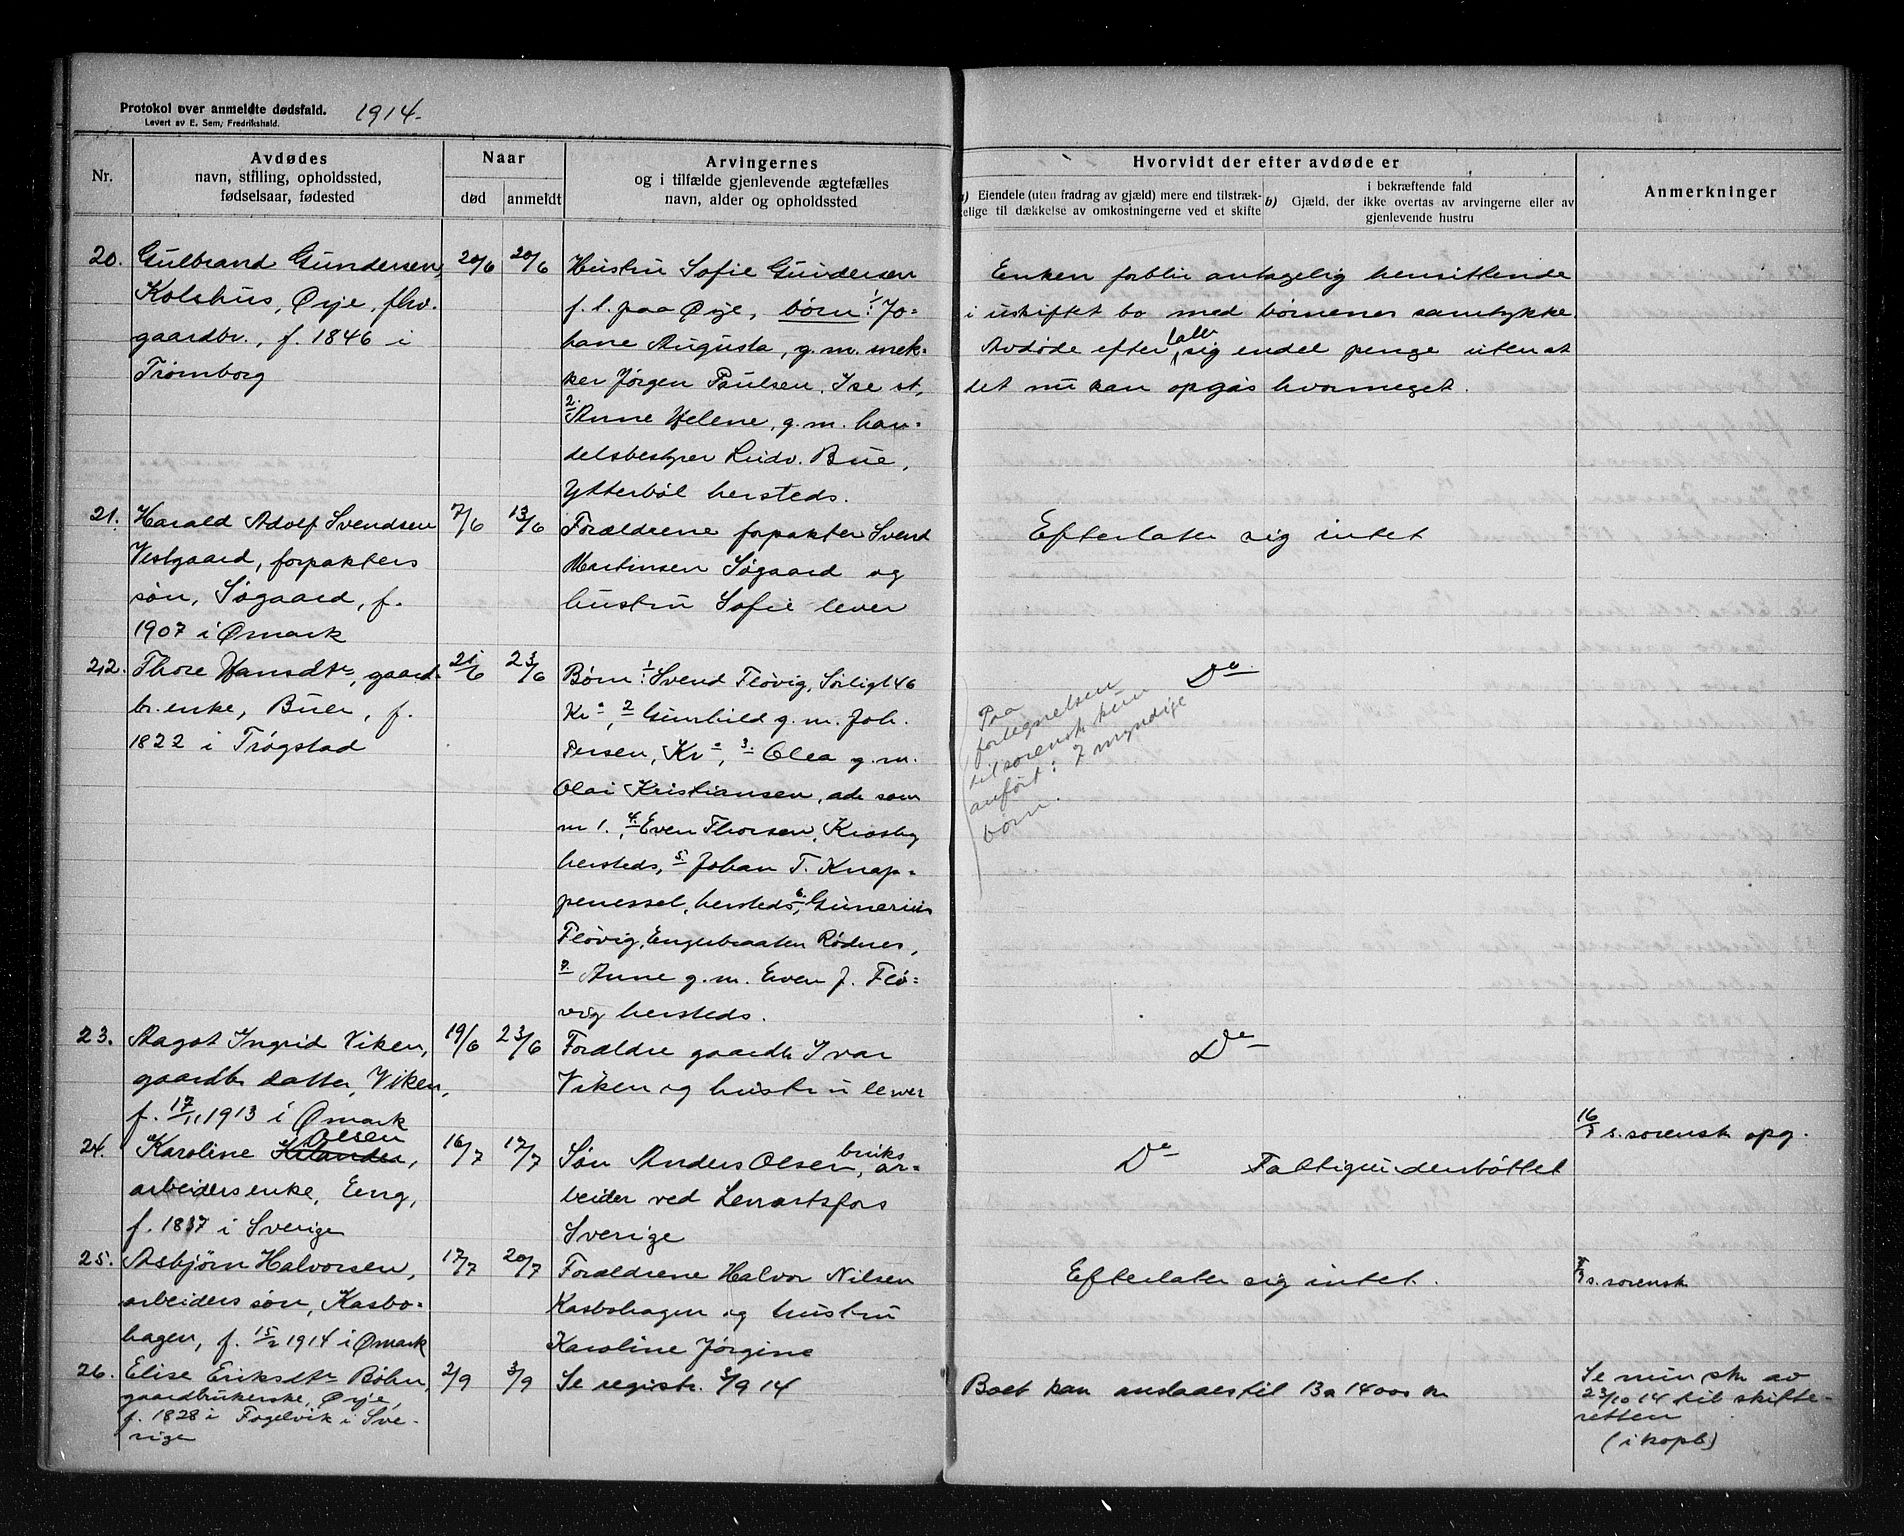 Protokol over anmeldte dødsfald. 1914.
Levert av E. Sem, Fredrikshald.
Nr.
Avdødes
navn, stilling, opholdssted,
fødselsaar, fødested
Naar
død
anmeldt
Arvingernes
og i tilfælde gjenlevende ægtefælles
navn, alder og opholdssted
Hvorvidt der efter avdøde er
a) Eiendele (uten fradrag av gjæld) mere end tilstræk-
kelige til dækkelse av omkostningerne ved et skifte
i bekræftende fald
b) Gjæld, der ikke overtas av arvingerne eller av
gjenlevende hustru
Anmerkninger
20.
Gulbrand Gundersen,
Kolshus, Ørje, fhv.
gaardbr., f. 1846 i
Trømborg
20/6
20/6
Hustru Sofie Gundersen
f. l. paa Ørje, børn: 1. Jo-
hane Augusta, g. m. mek-
ker Jørgen Paulsen, Ise st,
2. Anne Helene, g. m. han-
delsbestyrer Ludv. Bue,
Ytterbøl hersteds.
Enken forblir antagelig hensittende
i uskiftet bo med børnenes samtykke.
Avdøde efterlatr sig endel penge uten at
det nu kan opgis hvormeget.
21.
Harald Adolf Svendsen
Vestgaard, forpakters
søn, Søgaard, f.
1907 i Ømark
7/6
13/6
Forældrene forpakter Svend
Martinsen Søgaard og
hustru Sofie lever
Efterlater sig intet
22.
Thore Hansdtr, gaard-
br. enke, Buer, f.
1822 i Trøgstad
21/6
23/6
Børn: 1. Svend Fløvig, Sørligt 46
Kra, 2 Gunhild g. m. Joh.
Persen, Kra, 3. Olea g. m.
Olai Kristiansen, adr som
nr 1., 4. Even Thorsen, Krosby
hersteds, 5. Johan T. Knap-
penessel, hersteds, 6. Gunerius
Fløvig, Engebraaten Rødnes,
7. Anne g. m. Even J. Flø-
vig hersteds.
Do
Paa
fortegnelsen
til sorensk. kun
anført: 7 myndige
børn.
23.
Aagot Ingrid Viken,
gaardbr datter, Viken,
f. 17/11 1913 i Ømark
19/6
23/6
Forældre gaardbr Ivar
Viken og hustru lever
Do
24.
Olsen
Karoline Kilander,
arbeidersenke, Eng,
f. 1837 i Sverige
16/7
17/7
Søn Anders Olsen, bruks ar-
beider ved Lenartsfors
Sverige
Do Fattigunderstøttet
s. sorensk opg.
25.
Asbjørn Halvorsen,
arbeiders søn, Kasbo-
hagen, f. 15/2 1914 i Ømark
17/7
20/7
Forældrene Halvor Nilsen
Kasbohagen og hustru
Karoline Jørgine
Efterlater sig intet.
s. sorensk
26.
Elise Eriksdtr Bøhn,
gaardbrukerske, Ørje,
f. 1828 i Fogelvik i Sve-
rige
2/9
3/9
Se registr. 3/9 14
Boet kan ansladestil 13 a 14000 kr
Se min skr av
23/10 14 til skifte-
retten
(i kopb)